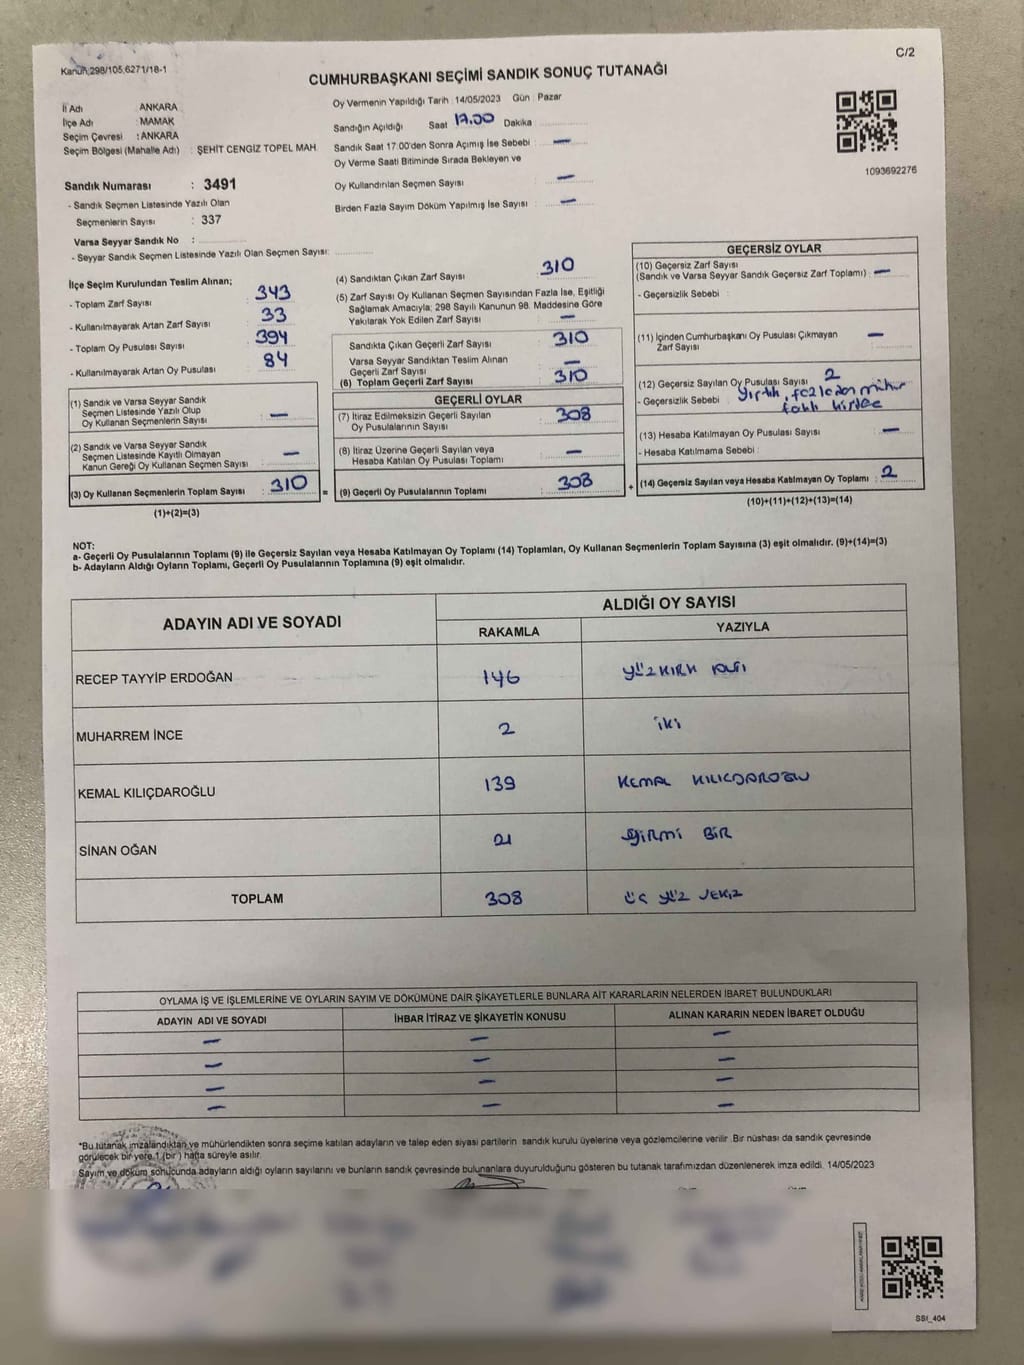 C/2
Kanun;298/105,6271/18-1
CUMHURBAŞKANI SEÇİMİ SANDIK SONUÇ TUTANAĞI
İl Adı : ANKARA
İlçe Adı : MAMAK
Seçim Çevresi : ANKARA
Seçim Bölgesi (Mahalle Adı) : ŞEHİT CENGİZ TOPEL MAH.
Oy Vermenin Yapıldığı Tarih : 14/05/2023 Gün : Pazar
Sandığın Açıldığı Saat 17.00 Dakika :
Sandık Saat 17.00'den Sonra Açımış İse Sebebi : —
Oy Verme Saati Bitiminde Sırada Bekleyen ve
Oy Kullandırılan Seçmen Sayısı : —
Birden Fazla Sayım Döküm Yapılmış İse Sayısı : —
1093692276
Sandık Numarası : 3491
- Sandık Seçmen Listesinde Yazılı Olan
Seçmenlerin Sayısı : 337
Varsa Seyyar Sandık No :
- Seyyar Sandık Seçmen Listesinde Yazılı Olan Seçmen Sayısı:
İlçe Seçim Kurulundan Teslim Alınan;
- Toplam Zarf Sayısı : 343
- Kullanılmayarak Artan Zarf Sayısı : 33
- Toplam Oy Pusulası Sayısı : 394
- Kullanılmayarak Artan Oy Pusulası : 84
(1) Sandık ve Varsa Seyyar Sandık
Seçmen Listesinde Yazılı Olup
Oy Kullanan Seçmenlerin Sayısı : —
(2) Sandık ve Varsa Seyyar Sandık
Seçmen Listesinde Kayıtlı Olmayan
Kanun Gereği Oy Kullanan Seçmen Sayısı : —
(3) Oy Kullanan Seçmenlerin Toplam Sayısı : 310
(1)+(2)=(3)
=
(4) Sandıktan Çıkan Zarf Sayısı : 310
(5) Zarf Sayısı Oy Kullanan Seçmen Sayısından Fazla İse, Eşitliği
Sağlamak Amacıyla; 298 Sayılı Kanunun 98. Maddesine Göre
Yakılarak Yok Edilen Zarf Sayısı : —
Sandıkta Çıkan Geçerli Zarf Sayısı : 310
Varsa Seyyar Sandıktan Teslim Alınan
Geçerli Zarf Sayısı : —
(6) Toplam Geçerli Zarf Sayısı : 310
GEÇERLİ OYLAR
(7) İtiraz Edilmeksizin Geçerli Sayılan
Oy Pusulalarının Sayısı : 308
(8) İtiraz Üzerine Geçerli Sayılan veya
Hesaba Katılan Oy Pusulası Toplamı : —
(9) Geçerli Oy Pusulalarının Toplamı : 308
+
GEÇERSİZ OYLAR
(10) Geçersiz Zarf Sayısı
(Sandık ve Varsa Seyyar Sandık Geçersiz Zarf Toplamı) : —
- Geçersizlik Sebebi :
(11) İçinden Cumhurbaşkanı Oy Pusulası Çıkmayan
Zarf Sayısı : —
(12) Geçersiz Sayılan Oy Pusulası Sayısı : 2
- Geçersizlik Sebebi : Yırtık, fazladan mühür
(13) Hesaba Katılmayan Oy Pusulası Sayısı : —
- Hesaba Katılmama Sebebi :
(14) Geçersiz Sayılan veya Hesaba Katılmayan Oy Toplamı : 2
(10)+(11)+(12)+(13)=(14)
NOT:
a- Geçerli Oy Pusulalarının Toplamı (9) ile Geçersiz Sayılan veya Hesaba Katılmayan Oy Toplamı (14) Toplamları, Oy Kullanan Seçmenlerin Toplam Sayısına (3) eşit olmalıdır. (9)+(14)=(3)
b- Adayların Aldığı Oyların Toplamı, Geçerli Oy Pusulalarının Toplamına (9) eşit olmalıdır.
ADAYIN ADI VE SOYADI
ALDIĞI OY SAYISI
RAKAMLA YAZIYLA
RECEP TAYYİP ERDOĞAN 146 YÜZKIRK ALTI
MUHARREM İNCE 2 iki
KEMAL KILIÇDAROĞLU 139 KEMAL KILIÇDAROĞLU
SİNAN OĞAN 21 YİRMİ BİR
TOPLAM 308 ÜÇ YÜZ SEKİZ
OYLAMA İŞ VE İŞLEMLERİNE VE OYLARIN SAYIM VE DÖKÜMÜNE DAİR ŞİKAYETLERLE BUNLARA AİT KARARLARIN NELERDEN İBARET BULUNDUKLARI
ADAYIN ADI VE SOYADI İHBAR İTİRAZ VE ŞİKAYETİN KONUSU ALINAN KARARIN NEDEN İBARET OLDUĞU
— — —
— — —
— — —
— — —
*Bu tutanak imzalandıktan ve mühürlendikten sonra seçime katılan adayların ve talep eden siyasi partilerin sandık kurulu üyelerine veya gözlemcilerine verilir .Bir nüshası da sandık çevresinde
görülecek bir yere 1 (bir ) hafta süreyle asılır.
Sayım ve döküm sonucunda adayların aldığı oyların sayılarını ve bunların sandık çevresinde bulunanlara duyurulduğunu gösteren bu tutanak tarafımızdan düzenlenerek imza edildi. 14/05/2023
SSI_404